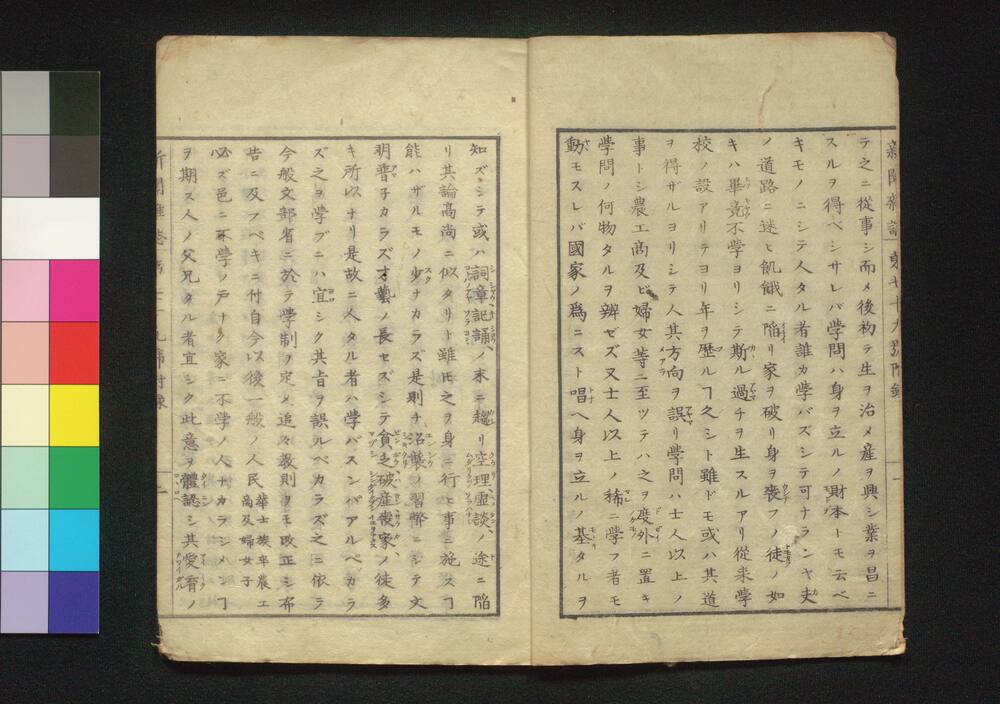 テ之ニ從事シ而メ後初テ生ヲ治メ產ヲ興シ業ヲ昌ニ
スルヲ得ベシサレバ学問ハ身ヲ立ルノ財本トモ云ベ
キモノニシテ人タル者誰カ学バズシテ可ナランヤ夫
ノ道路ニ迷ヒ飢餓ニ陷リ家ヲ破リ身ヲ喪フノ徒ノ如
キハ畢竟不学ヨリシテ斯ル過チヲ生スルアリ從来学
校ノ設アリテヨリ年ヲ歴ルヿ久シト雖ドモ或ハ其道
ヲ得ザルヨリシテ人其方向ヲ誤リ学問ハ士人以上ノ
事トシ農工商及ビ婦女等ニ至ツテハ之ヲ度外ニ置キ
學問ノ何物タルヲ辨ゼズ又士人以上ノ稀ニ學フ者モ
動モスレバ國家ノ爲ニスト唱ヘ身ヲ立ルノ基タルヲ
知ズシテ或ハ詞章記誦ノ末ニ趨リ空理虛談ノ途ニ陷
リ其論高尚ニ似タリト雖𪜈之ヲ身ニ行ヒ事ニ施スヿ
能ハザルモノ少ナカラズ是則チ沿襲ノ習弊ニシテ文
明普子カラズ才藝ノ長セズシテ貧乏破産喪家ノ徒多
キ所以ナリ是故ニ人タル者ハ学バスンバアルベカラ
ズ之ヲ學ブニハ宜シク其旨ヲ誤ルベカラズ之ニ依テ
今般文部省ニ於テ学制ヲ定メ追々敎則ヲモ改正シ布
告ニ及フベキニ付自今以後一般ノ人民華士族卒農工商及婦女子
必ズ邑ニ不學ノ戸ナク家ニ不學ノ人ナカラシメンヿ
ヲ期ス人ノ父兄タル者宜シク此意ヲ體認シ其愛育ノ